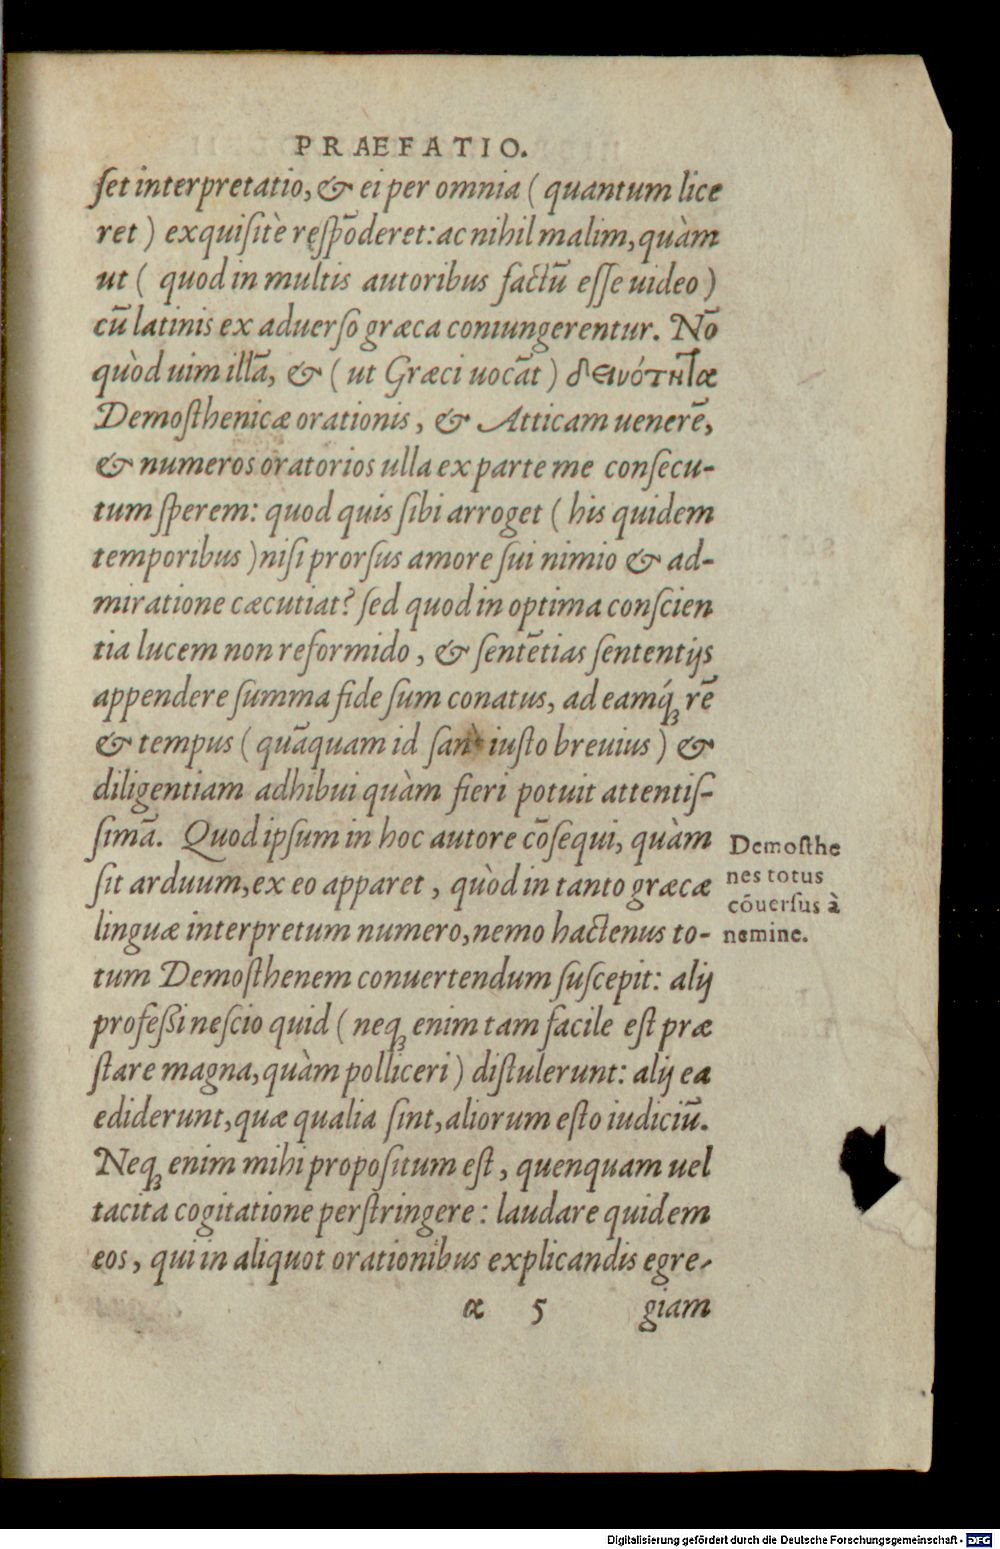 PRAEFATIO.
ſet interpretatio, & ei per omnia ( quantum lice
ret ) exquiſitè reſpōderet: ac nihil malim, quàm
ut ( quod in multis autoribus factū eſſe uideo )
cū latinis ex aduerſo græca coniungerentur. Nō
quòd uim illā, & ( ut Græci uocāt ) δεινότητα
Demoſthenicæ orationis, & Atticam uenerē,
& numeros oratorios ulla ex parte me conſecu-
tum ſperem: quod quis ſibi arroget ( his quidem
temporibus ) niſi prorſus amore ſui nimio & ad-
miratione cæcutiat? ſed quod in optima conſcien
tia lucem non reformido, & ſentētias ſententijs
appendere ſumma fide ſum conatus, ad eamq́ꝫ rē
& tempus ( quāquam id ſanè iuſto breuius ) &
diligentiam adhibui quàm fieri potuit attentiſ-
ſimā. Quod ipſum in hoc autore cōſequi, quàm
ſit arduum, ex eo apparet, quòd in tanto græcæ
linguæ interpretum numero, nemo hactenus to-
tum Demoſthenem conuertendum ſuſcepit: alij
profeßi neſcio quid ( neqꝫ enim tam facile eſt præ
ſtare magna, quàm polliceri ) diſtulerunt: alij ea
ediderunt, quæ qualia ſint, aliorum eſto iudiciū.
Neqꝫ enim mihi propoſitum eſt, quenquam uel
tacita cogitatione perſtringere: laudare quidem
eos, qui in aliquot orationibus explicandis egre-
α 5 giam
Demoſthe
nes totus
cōuerſus à
nemine.
Digitalisierung gefördert durch die Deutsche Forschungsgemeinschaft - DFG